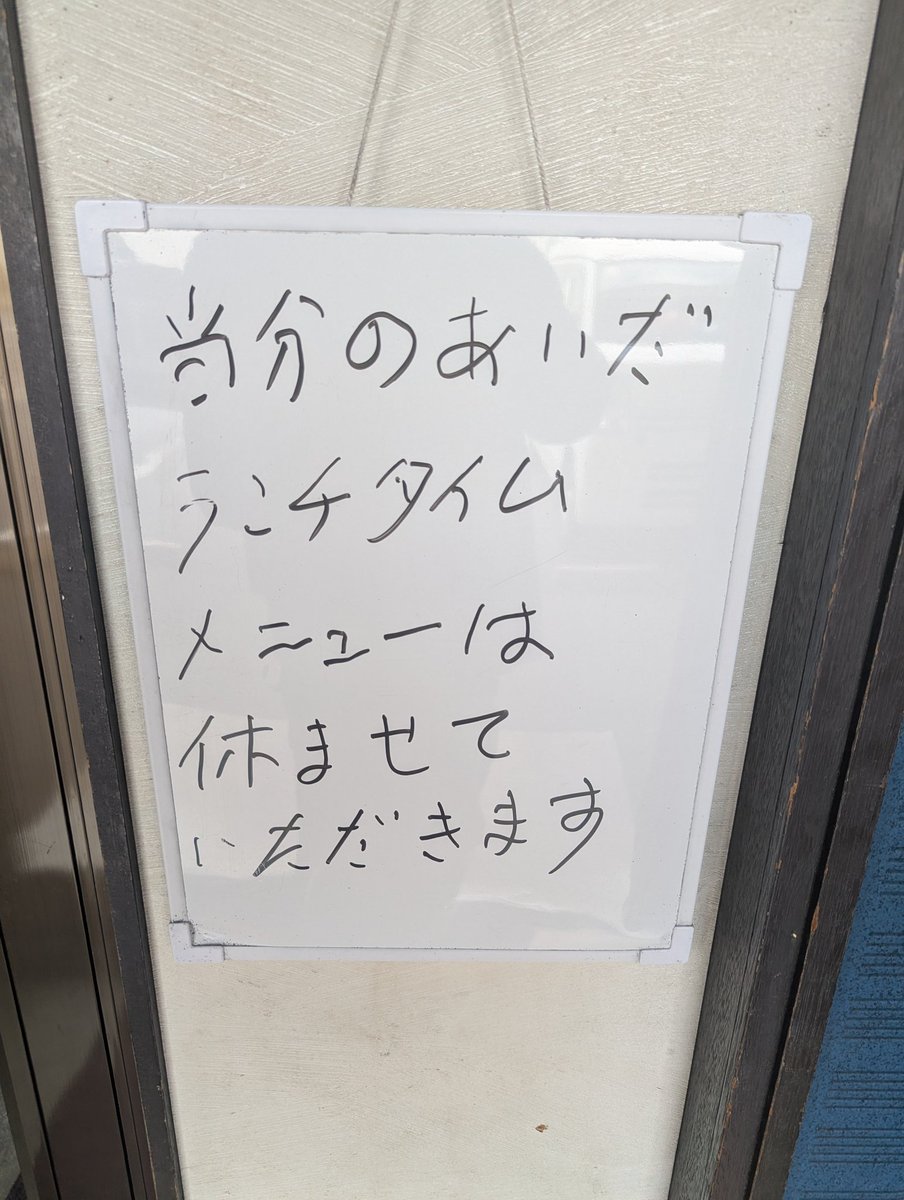 当分のあいだ
ランチタイム
メニューは
休ませて
いただきます